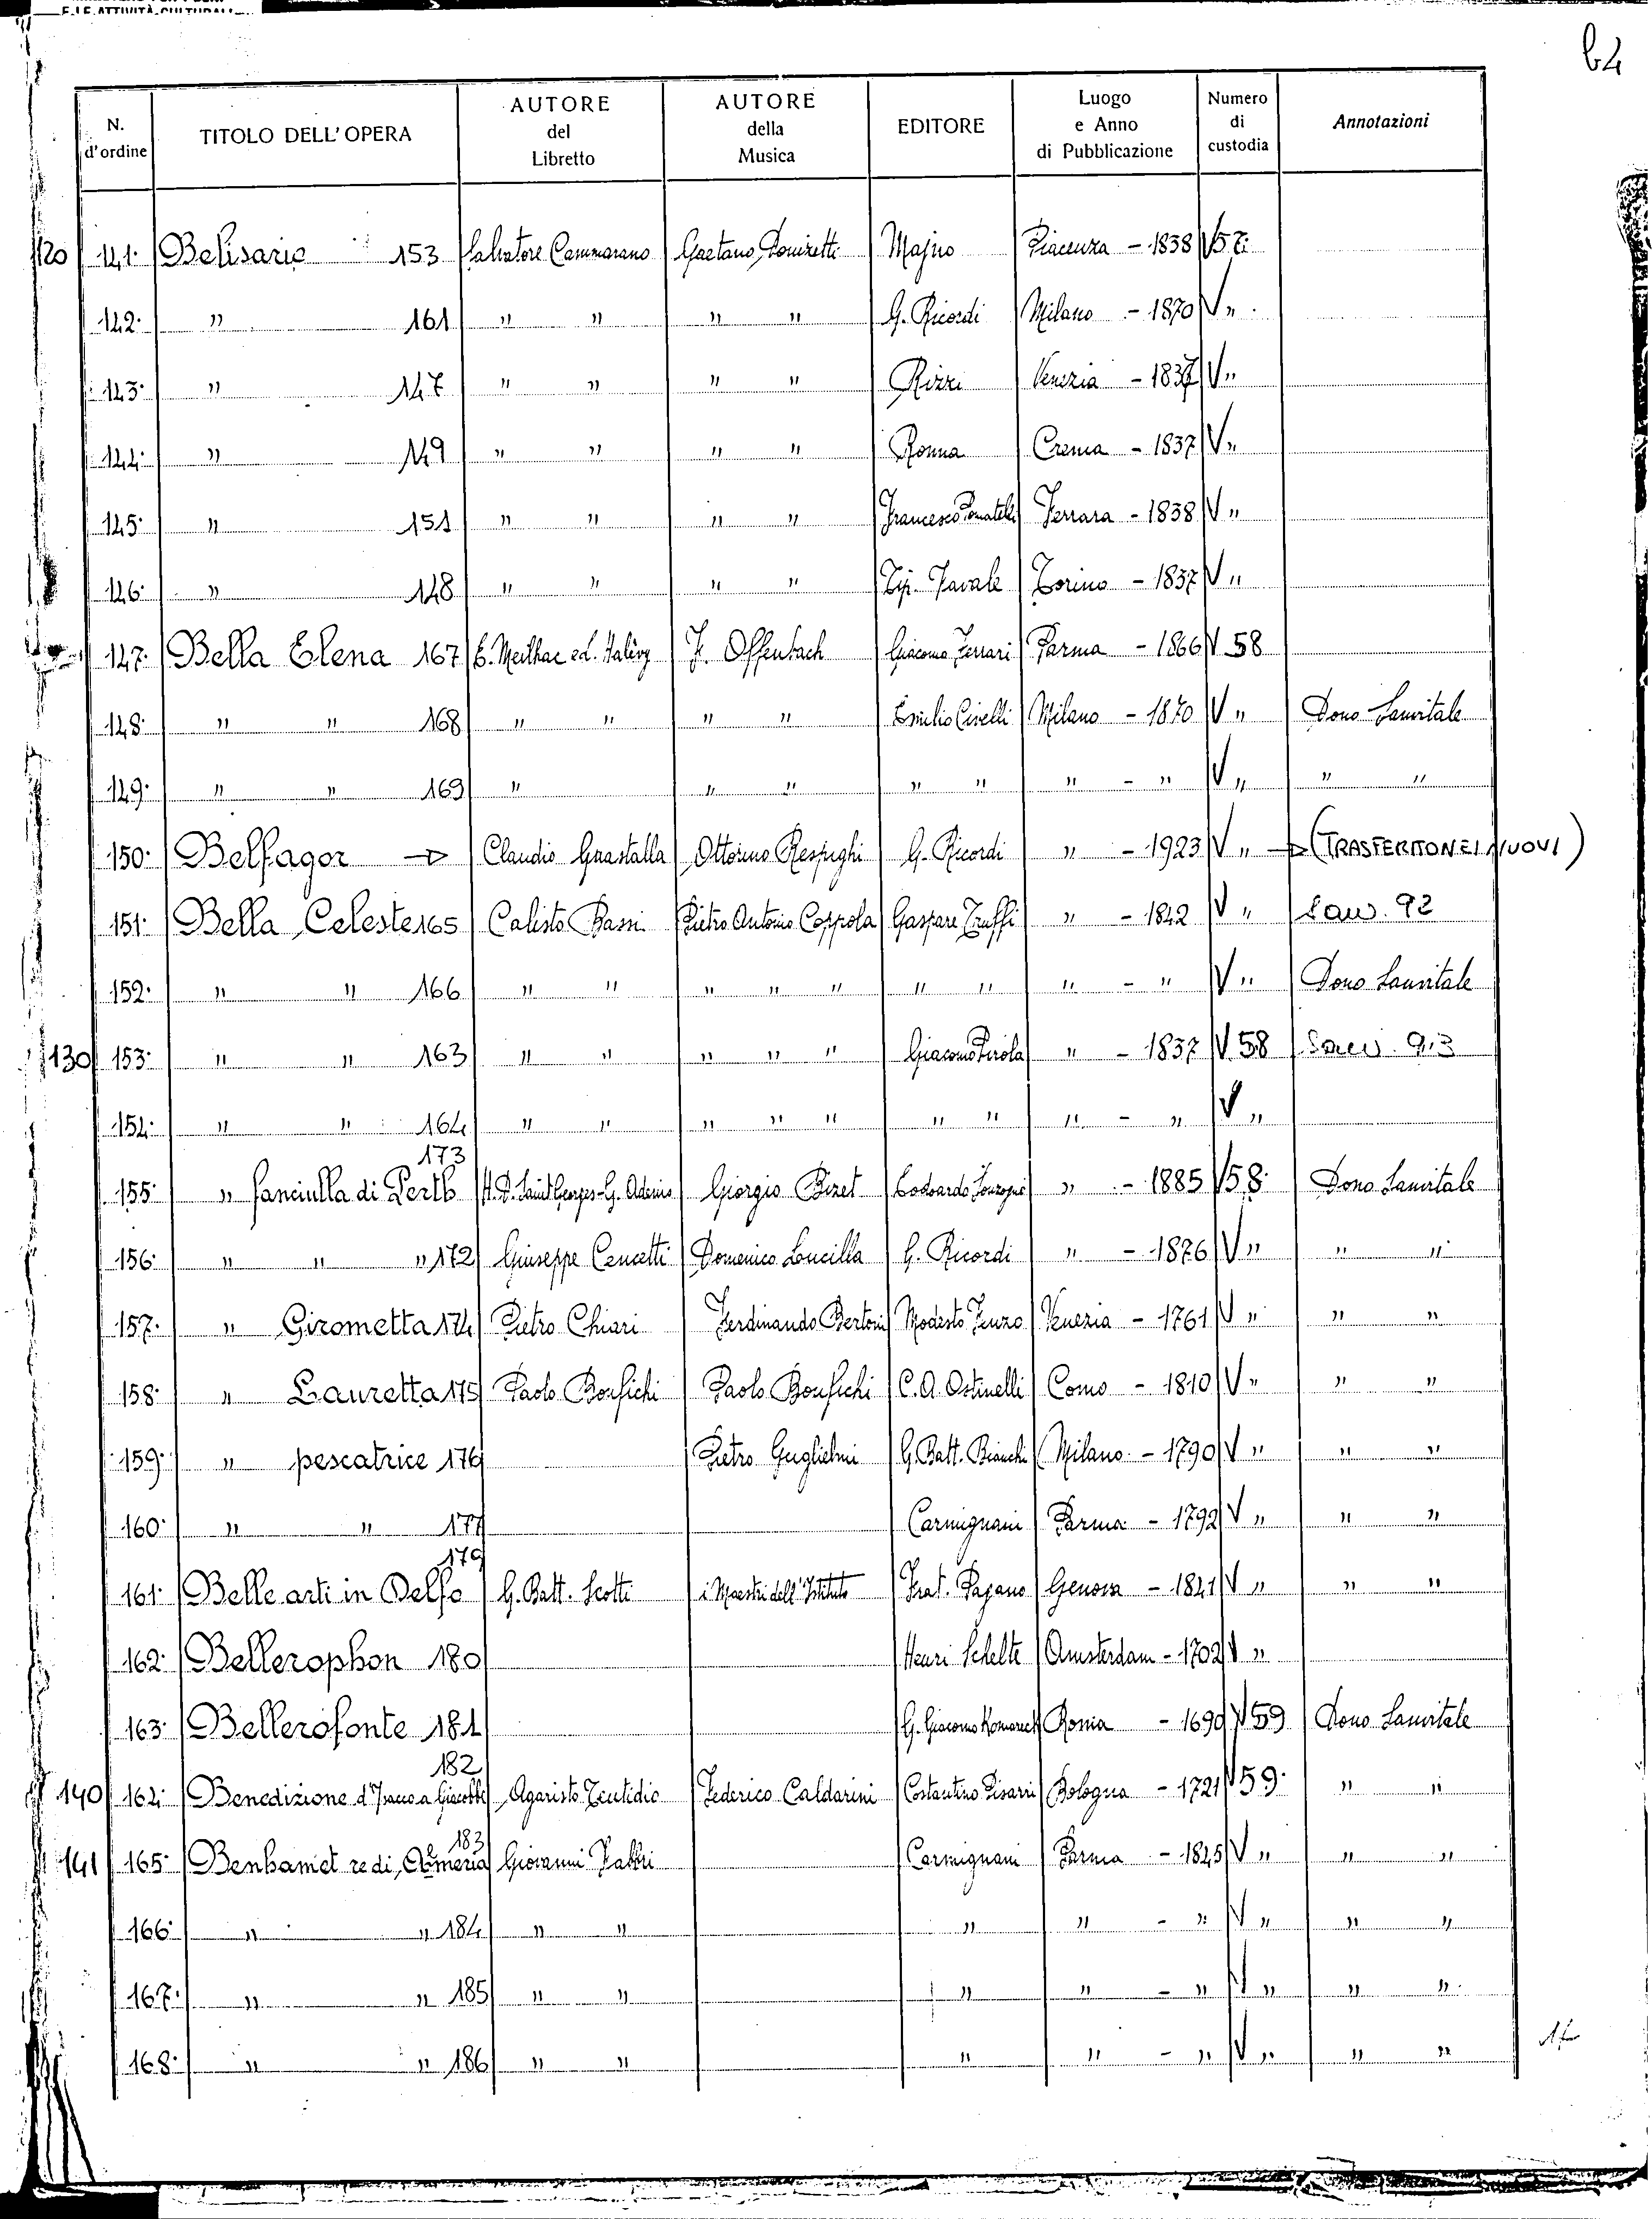 E LE ATTIVITÀ CULTURALI
b4
N. d'ordine | TITOLO DELL'OPERA | AUTORE del Libretto | AUTORE della Musica | EDITORE | Luogo e Anno di Pubblicazione | Numero di custodia | Annotazioni
120 141. Belisario 153 Salvatore Cammarano Gaetano Donizetti Majno Piacenza - 1838 V 57.
142. " 161 " " " " G. Ricordi Milano - 1870 V "
143. " 147 " " " " Rizzi Venezia - 1837 V "
144. " 149 " " " " Ronna Crema - 1837 V "
145. " 151 " " " " Francesco Ferrara - 1838 V "
146. " 148 " " " " Tip. Favale Torino - 1837 V "
147. Bella Elena 167 E. Meilhac ed. Halévy J. Offenbach Giacomo Ferrari Parma - 1866 V 58
148. " " 168 " " " " Emilio Civelli Milano - 1870 V " Dono Sanvitale
149. " " 169 " " " " " " - " V " " "
150. Belfagor → Claudio Guastalla Ottorino Respighi G. Ricordi " - 1923 V " → (TRASFERITO NEI NUOVI)
151. Bella Celeste 165 Calisto Bassi Pietro Antonio Coppola Gaspare Truffi " - 1842 V " Sanv. 92
152. " " 166 " " " " " " " " - " V " Dono Sanvitale
130 153. " " 163 " " " " " Giacomo Pirola " - 1837 V 58 Sanv. 93
154. " " 164 " " " " " " " " - " V "
173
155. " fanciulla di Perth H. D. Saint Georges - G. Adenis Giorgio Bizet Edoardo Sonzogno " - 1885 V 58. Dono Sanvitale
156. " " " 172 Giuseppe Cencetti Domenico Lucilla G. Ricordi " - 1876 V " " "
157. " Girometta 174 Pietro Chiari Ferdinando Bertoni Modesto Fenzo Venezia - 1761 V " " "
158. " Lauretta 175 Paolo Bonfichi Paolo Bonfichi C. A. Ostinelli Como - 1810 V " " "
159. " pescatrice 176 Pietro Guglielmi G. Batt. Bianchi Milano - 1790 V " " "
160. " " 177 Carmignani Parma - 1792 V " " "
179
161. Belle arti in Delfo G. Batt. Scotti i Maestri dell'Istituto Frat. Pagano Genova - 1841 V " " "
162. Bellerophon 180 Henri Schelte Amsterdam - 1702 V "
163. Bellerofonte 181 G. Giacomo Komarek Roma - 1690 V 59 Dono Sanvitale
182
140 164. Benedizione d'Isacco a Giacobbe Agaristo Teutidio Federico Caldarini Costantino Pisarri Bologna - 1721 V 59. " "
183
141 165. Benhamet re di Almeria Giovanni Fabbri Carmignani Parma - 1845 V " " "
166. " " 184 " " " " - " V " " "
167. " " 185 " " " " - " V " " "
168. " " 186 " " " " - " V " " "